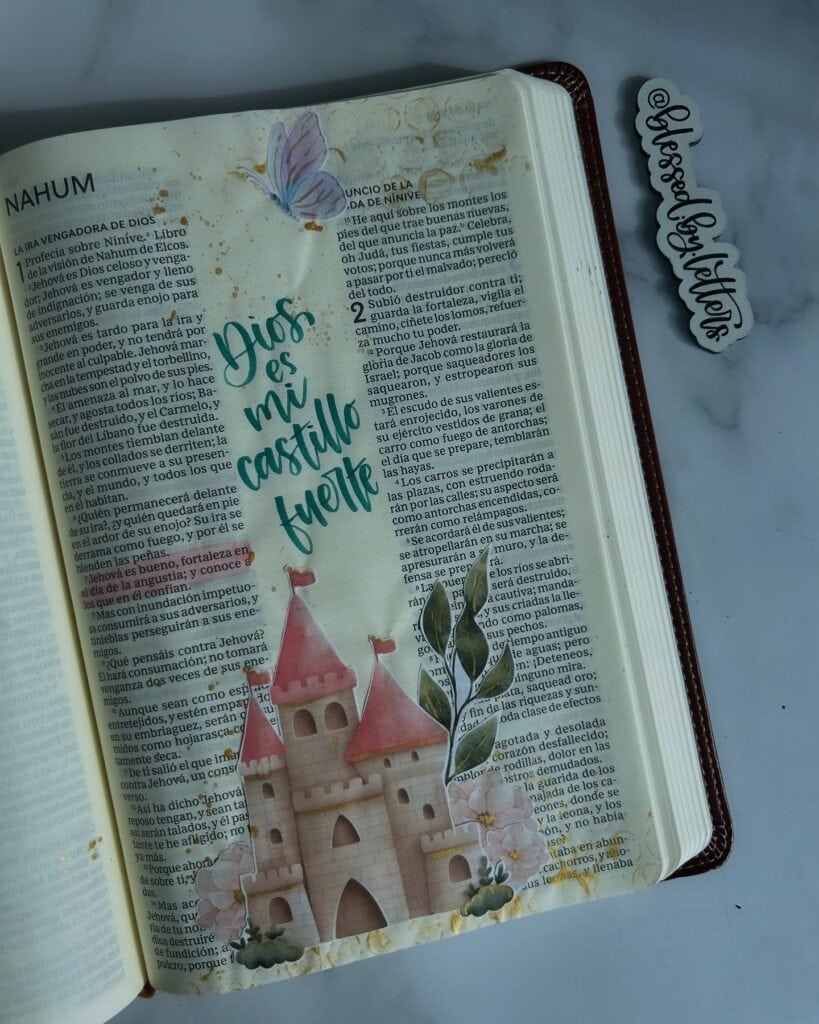 NAHUM
LA IRA VENGADORA DE DIOS
1 Profecía sobre Nínive. Libro
de la visión de Nahum de Elcos.
Jehová es Dios celoso y venga-
dor; Jehová es vengador y lleno
de indignación; se venga de sus
adversarios, y guarda enojo para
sus enemigos.
Jehová es tardo para la ira y
grande en poder, y no tendrá por
inocente al culpable. Jehová mar-
cha en la tempestad y el torbellino,
y las nubes son el polvo de sus pies.
El amenaza al mar, y lo hace
secar, y agosta todos los ríos; Ba-
sán fue destruido, y el Carmelo, y
la flor del Líbano fue destruida.
Los montes tiemblan delante
de él, y los collados se derriten; la
tierra se conmueve a su presen-
cia, y el mundo, y todos los que
en él habitan.
¿Quién permanecerá delante
de su ira?, ¿y quién quedará en pie
en el ardor de su enojo? Su ira se
derrama como fuego, y por él se
hienden las peñas.
Jehová es bueno, fortaleza en
el día de la angustia; y conoce a
los que en él confían.
Mas con inundación impetuo-
sa consumirá a sus adversarios, y
tinieblas perseguirán a sus ene-
migos.
¿Qué pensáis contra Jehová?
Él hará consumación; no tomará
venganza dos veces de sus ene-
migos.
Aunque sean como
entretejidos, y estén
en su embriaguez, serán
midos como hojarasca
tamente seca.
De ti salió el que
contra Jehová, un
verso.
Así ha dicho Jehová
reposo tengan, y sean
así serán talados, y él
te he afligido; no
ya más.
Porque
de sobre ti, y
das.
Mas
Jehová,
ria de tu
dios destruiré
de fundición;
pulcro, porque
Dios
es
mi
castillo
fuerte
UNCIO DE LA
DA DE NÍNIVE
15 He aquí sobre los montes los
pies del que trae buenas nuevas,
del que anuncia la paz. Celebra,
oh Judá, tus fiestas, cumple tus
votos; porque nunca más volverá
a pasar por ti el malvado; pereció
del todo.
2 Subió destruidor contra ti;
guarda la fortaleza, vigila el
camino, cíñete los lomos, refuer-
za mucho tu poder.
Porque Jehová restaurará la
gloria de Jacob como la gloria de
Israel; porque saqueadores los
saquearon, y estropearon sus
mugrones.
3 El escudo de sus valientes es-
tará enrojecido, los varones de
su ejército vestidos de grana; el
carro como fuego de antorchas;
el día que se prepare, temblarán
las hayas.
4 Los carros se precipitarán a
las plazas, con estruendo roda-
rán por las calles; su aspecto será
como antorchas encendidas, co-
rrerán como relámpagos.
5 Se acordará él de sus valientes;
se atropellarán en su marcha; se
apresurarán a muro, y la de-
fensa se
los ríos se abri-
será destruido.
cautiva; manda-
y sus criadas la lle-
como palomas,
sus pechos.
de tiempo antiguo
de aguas; pero
¡Deteneos,
ninguno mira.
plata, saquead oro;
fin de las riquezas y sun-
toda clase de efectos
agotada y desolada
corazón desfallecido;
de rodillas, dolor en las
rostros demudados.
la guarida de los
de los ca-
donde se
y la leona, y los
y no había
cachorros, y aho-
y llenaba
@blessed.by.letters